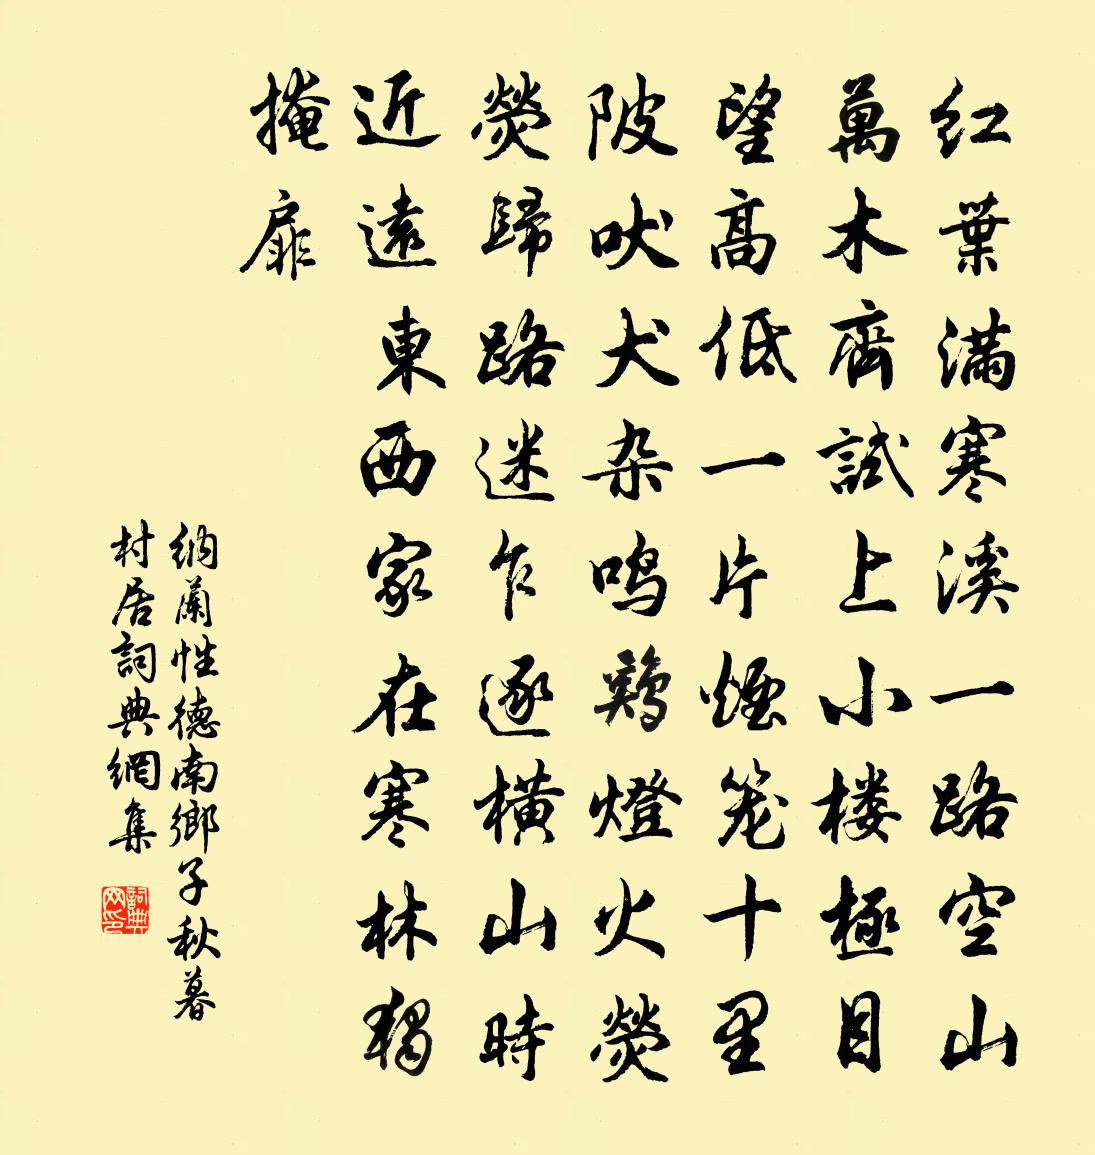 红葉满寒溪一路空山
萬木齊試上小楼極目
望高低一片煙笼十里
陂吠犬杂鸣鷄燈火熒
熒歸路迷乍逐橫山時
近遠東西家在寒林獨
掩扉
納蘭性德南鄉子秋暮
村居詞典網集
詞典
网印